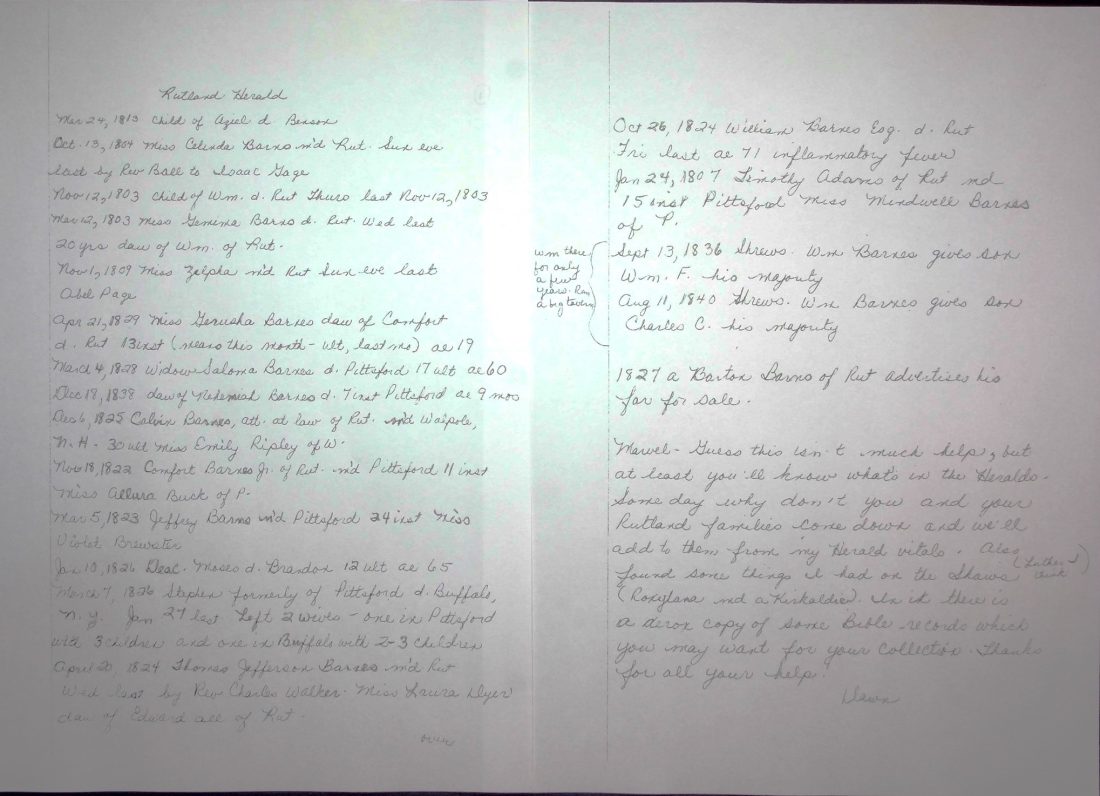 Rutland Herald
Mar 24, 1813 Child of Aziel d. Benson
Oct. 13, 1804 Miss Celinda Barns m'd Rut. Sun eve
last by Rev Ball to Isaac Gage
Nov 12, 1803 child of Wm. d. Rut Thurs last Nov 12, 1803
Mar 12, 1803 Miss Jemima Barns d. Rut. Wed last
20 yrs daw of Wm. of Rut.
Nov 1, 1809 Miss Zilpha m'd Rut Sun eve last
Abel Page
Apr 21, 1829 Miss Gerusha Barnes daw of Comfort
d. Rut 13 inst (means this month - ult, last mo) ae 19
March 4, 1828 Widow Saloma Barnes d. Pittsford 17 ult ae 60
Dec 18, 1838 daw of Nehemiah Barnes d. 7 inst Pittsford ae 9 mos
Dec 6, 1825 Calvin Barnes, att. at law of Rut. m'd Walpole,
N. H. - 30 ult Miss Emily Ripley of W.
Nov 18, 1822 Comfort Barnes Jr. of Rut. m'd Pittsford 11 inst
Miss Allura Buck of P.
Mar 5, 1823 Jeffrey Barns m'd Pittsford 24 inst Miss
Violet Brewster
Jan 10, 1826 Deac. Moses d. Brandon 12 ult ae 65
March 7, 1826 Stephen formerly of Pittsford d. Buffalo,
N. Y. Jan 27 last Left 2 wives - one in Pittsford
with 3 children and one in Buffalo with 2-3 children
April 20, 1824 Thomas Jefferson Barnes m'd Rut
Wed last by Rev Charles Walker. Miss Laura Dyer
daw of Edward all of Rut.
over
Oct 26, 1824 William Barnes Esq. d. Rut
Fri last ae 71 inflammatory fever
Jan 24, 1807 Timothy Adams of Rut md
15 inst Pittsford Miss Mindwell Barnes
of P.
Sept 13, 1836 Shrews. Wm Barnes gives son
Wm. F. his majority
Aug 11, 1840 Shrews. Wm Barnes gives son
Charles C. his majority
Wm there
for only
a few
years. Ran
a big tavern
1827 a Barton Barns of Rut advertises his
far for sale.
Marvel - Guess this isn't much help, but
at least you'll know what's in the Heralds.
Some day why don't you and your
Rutland families come down and we'll
add to them from my Herald vitals. Also
found some things I had on the Shaws (Luther I think)
(Roxylana md a Kirkaldie). In it there is
a xerox copy of some Bible records which
you may want for your collection. Thanks
for all your help.
Dawn